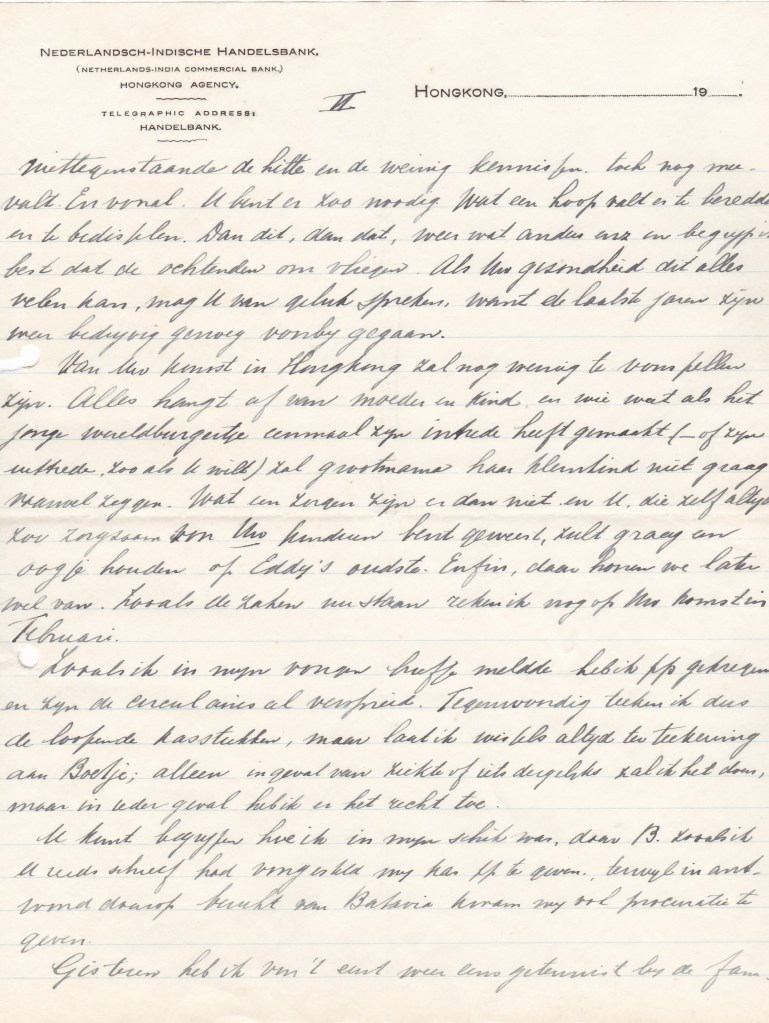 NEDERLANDSCH-INDISCHE HANDELSBANK.
(NETHERLANDS-INDIA COMMERCIAL BANK.)
HONGKONG AGENCY.
TELEGRAPHIC ADDRESS:
HANDELBANK.
II
HONGKONG, 19 .
niettegenstaande de hitte en de weinig kennissen. toch nog mee-
valt. En vooral. U bent er zoo noodig. Wat een hoop valt er te beredde
en te bedisselen. Dan dit, dan dat, weer wat anders enz en begrijp ik
best dat de ochtenden om vliegen. Als Uw gezondheid dit alles
velen kan, mag U van geluk spreken, want de laatste jaren zijn
weer bedrijvig genoeg voorbij gegaan.
Van Uw komst in Hongkong zal nog weinig te voorspellen
zijn. Alles hangt af van moeder en kind, en wie weet als het
jonge wereldburgertje eenmaal zijn intrede heeft gemaakt (– of zijn
uittrede, zoo als U wilt) zal grootmama haar kleinkind niet graag
vaarwel zeggen. Wat een zorgen zijn er dan niet en U, die zelf altijd
zoo zorgzaam voor Uw kinderen bent geweest, zult graag een
oogje houden op Eddy's oudste. Enfin, daar hooren we later
wel van. Zooals de zaken nu staan reken ik nog op Uw komst in
Februari.
Zooals ik in mijn vorige briefje meldde heb ik pp gekregen
en zijn de circulaires al verspreid. Tegenwoordig teeken ik dus
de loopende kasstukken, maar laat ik wissels altijd ter teekening
aan Boetje; alleen in geval van ziekte of iets dergelijks zal ik het doen,
maar in ieder geval heb ik er het recht toe.
U kunt begrijpen hoe ik in mijn schik was, daar B. zooals ik
U reeds schreef had voorgesteld mij kas pp te geven, terwijl in ant-
woord daarop bericht van Batavia kwam mij vol procuratie te
geven.
Gisteren heb ik voor 't eerst weer eens getennist bij de fam.